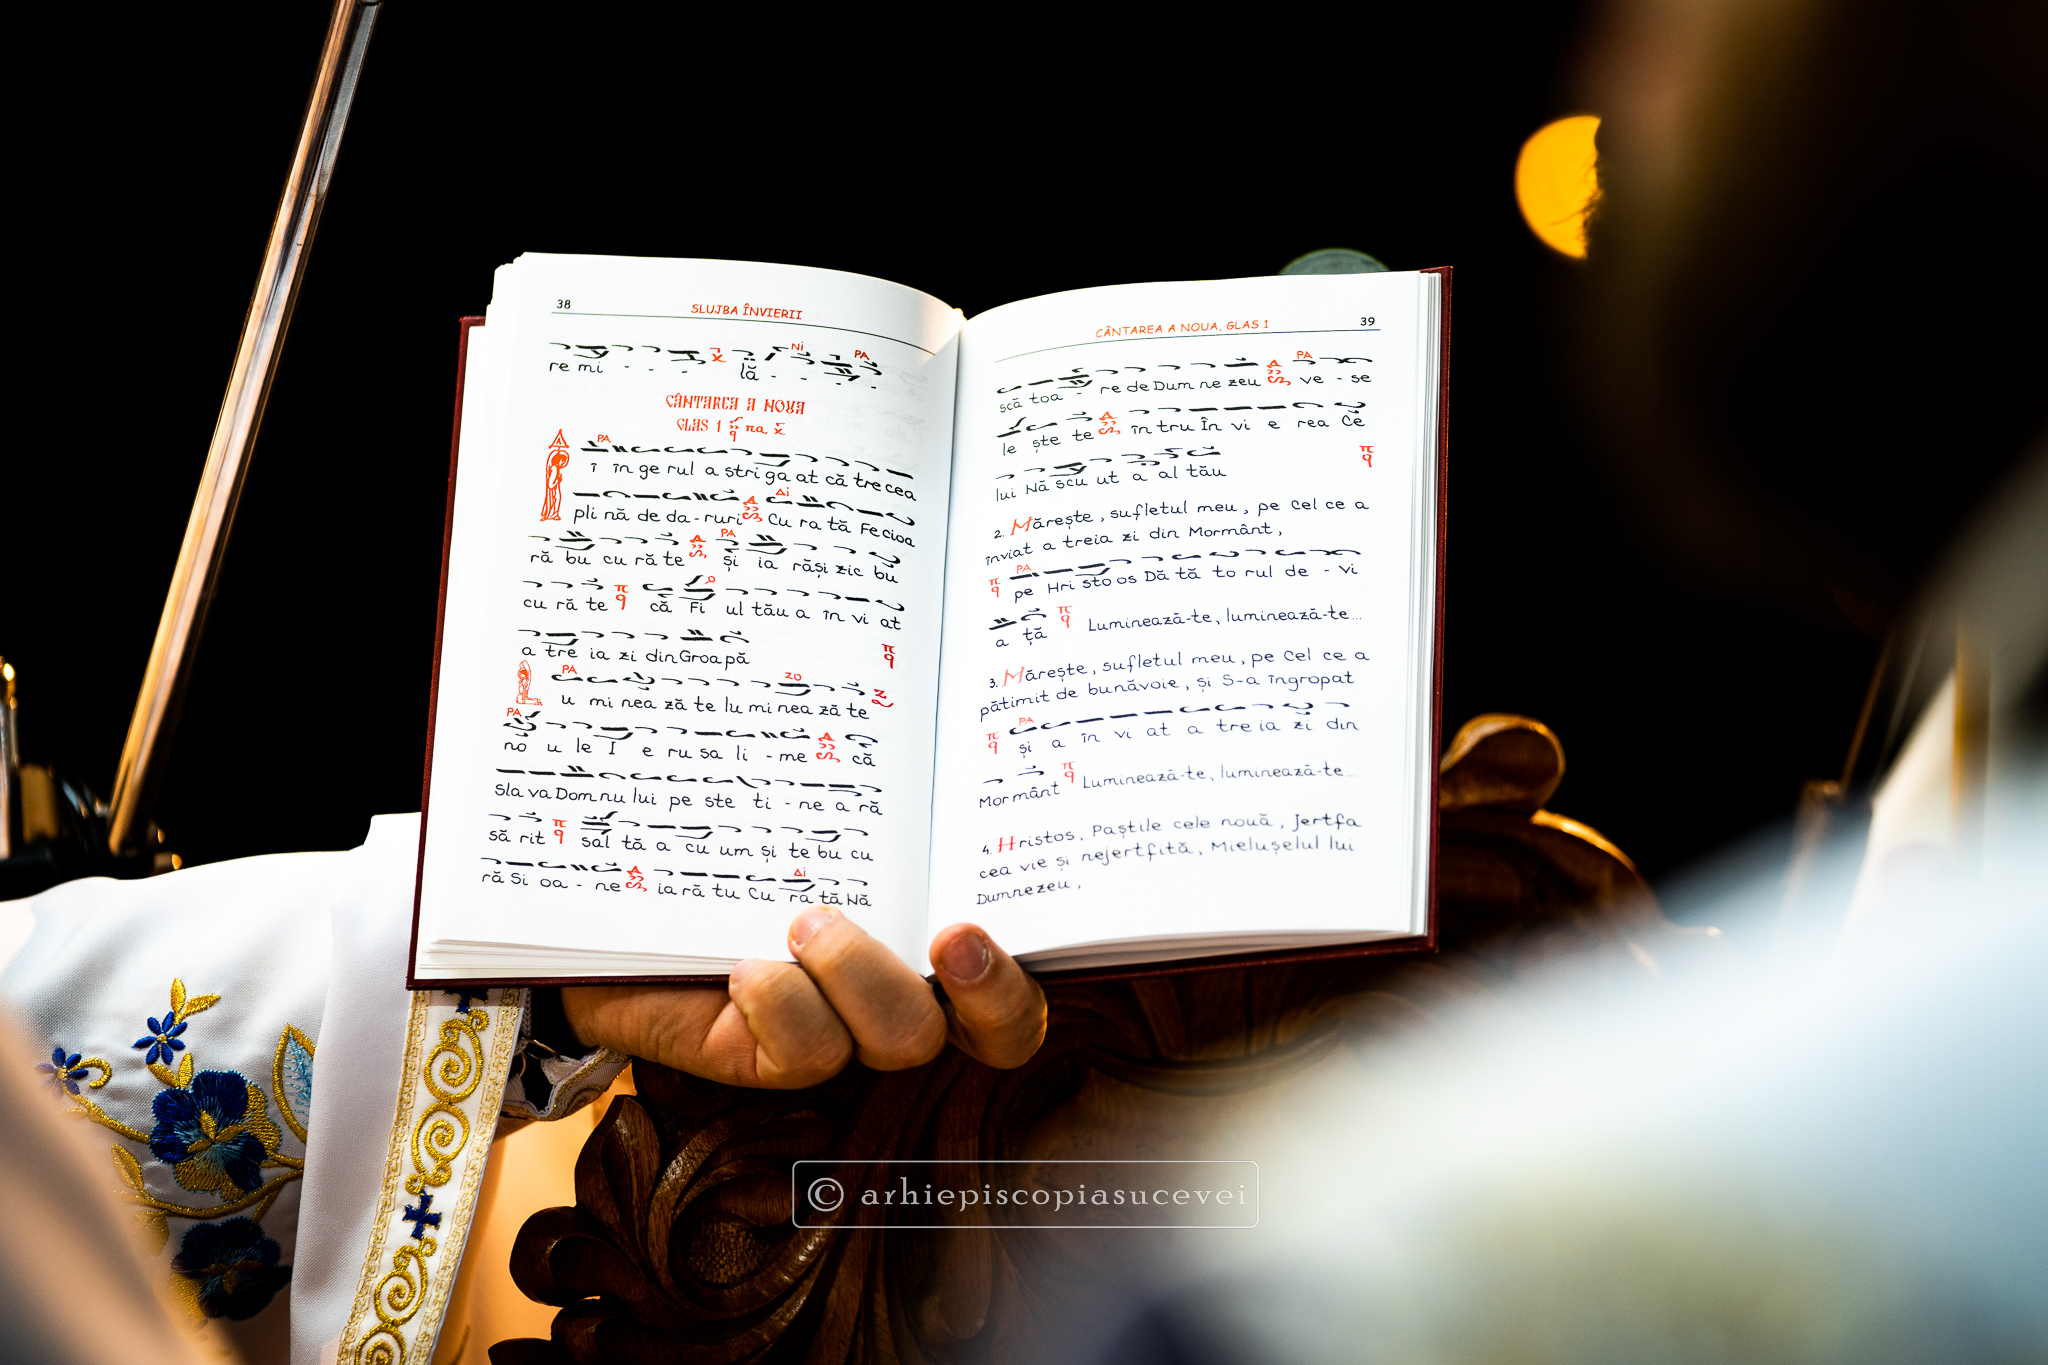 38
SLUJBA ÎNVIERII
NI PA
re mi - - - lă - - - -
CÂNTAREA A NOUA
GLAS 1 πα
PA
Î în ge rul a stri ga at că tre cea
Δi
pli nă de da - ruri Cu ra tă Fe cioa
PA
ră bu cu ră te și ia răși zic bu
cu ră te π q că Fi ul tău a în vi at
a tre ia zi din Groa pă π q
PA ZO
Lu mi nea ză te lu mi nea ză te
PA
no u le I e ru sa li - me că
sla va Dom nu lui pe ste ti - ne a ră
să rit π q sal tă a cu um și te bu cu
Δi
ră Si oa - ne ia ră tu Cu ra tă Nă
CÂNTAREA A NOUA, GLAS 1
39
PA
scă toa - re de Dum ne zeu ve - se
le ște te în tru În vi e rea Ce
π q
lui Nă scu ut a al tău
2. Mărește, sufletul meu, pe Cel ce a
înviat a treia zi din Mormânt,
PA
π q pe Hri sto os Dă tă to rul de - vi
a ță π q Luminează-te, luminează-te...
3. Mărește, sufletul meu, pe Cel ce a
pătimit de bunăvoie, și S-a îngropat
PA
π q și a în vi at a tre ia zi din
Mor mânt π q Luminează-te, luminează-te...
4. Hristos, Paștile cele nouă, Jertfa
cea vie și nejertfită, Mielușelul lui
Dumnezeu,
© arhiepiscopiasucevei